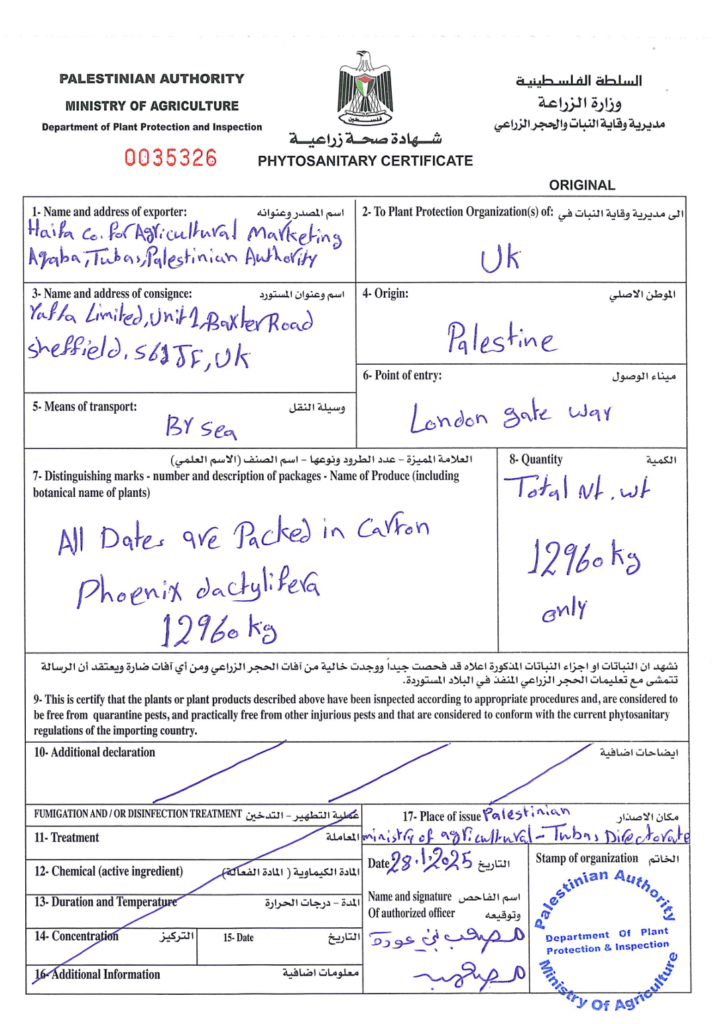 PALESTINIAN AUTHORITY
MINISTRY OF AGRICULTURE
Department of Plant Protection and Inspection
0035326
فلسطين
شهادة صحة زراعية
PHYTOSANITARY CERTIFICATE
السلطة الفلسطينية
وزارة الزراعة
مديرية وقاية النبات والحجر الزراعي
ORIGINAL
1- Name and address of exporter: اسم المصدر وعنوانه
Haifa co. for Agricultural Marketing
Aqaba, Tubas, Palestinian Authority
2- To Plant Protection Organization(s) of: الى مديرية وقاية النبات في
Uk
3- Name and address of consigne: اسم وعنوان المستورد
Yaffa Limited, Unit 1, Baxter Road
Sheffield, S61JF, UK
4- Origin: الموطن الاصلي
Palestine
5- Means of transport: وسيلة النقل
BY sea
6- Point of entry: ميناء الوصول
London gate way
العلامة المميزة - عدد الطرود ونوعها - اسم الصنف (الاسم العلمي)
7- Distinguishing marks - number and description of packages - Name of Produce (including
botanical name of plants)
All Dates are Packed in Carton
Phoenix dactylifera
12960 kg
8- Quantity الكمية
Total Nt. wt
12960 kg
only
نشهد ان النباتات او اجزاء النباتات المذكورة اعلاه قد فحصت جيداً ووجدت خالية من آفات الحجر الزراعي ومن أي آفات ضارة ويعتقد أن الرسالة
تتمشى مع تعليمات الحجر الزراعي المنفذ في البلاد المستوردة.
9- This is certify that the plants or plant products described above have been isnpected according to appropriate procedures and, are considered to
be free from quarantine pests, and practically free from other injurious pests and that are considered to conform with the current phytosanitary
regulations of the importing country.
10- Additional declaration ايضاحات اضافية
FUMIGATION AND / OR DISINFECTION TREATMENT عملية التطهير - التدخين
11- Treatment المعاملة
12- Chemical (active ingredient) المادة الكيماوية ( المادة الفعالة)
13- Duration and Temperature المدة - درجات الحرارة
14- Concentration التركيز
15- Date التاريخ
16- Additional Information معلومات اضافية
17- Place of issue Palestinian مكان الاصدار
ministry of agricultural - Tubas Directorate
Date 28.1.2025 التاريخ
Name and signature اسم الفاحص
Of authorized officer وتوقيعه
مصعب بني عودة
مصعب
Stamp of organization الخاتم
Palestinian Authority
Department Of Plant
Protection & Inspection
Ministry Of Agriculture